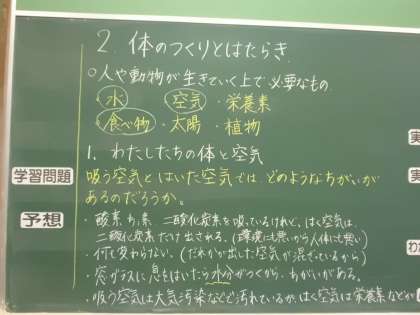 2. 体のつくりとはたらき
○人や動物が生きていく上で必要なもの
・水 ・空気 ・栄養素
・食べ物 ・太陽 ・植物
1. わたしたちの体と空気
学習問題
吸う空気とはいた空気では、どのようなちがいが
あるのだろうか。
予想
・酸素 ちっ素、二酸化炭素を吸っているけれど、はく空気は、
二酸化炭素だけ出される。(環境にも悪いから人体にも悪い)
・何も変わらない。(だれかが出した空気が混ざっているから)
・窓ガラスに息をはいたら水分がつくから、ちがいがある。
・吸う空気は大気汚染などで汚れているが、はく空気は栄養素などが
実
実
わ